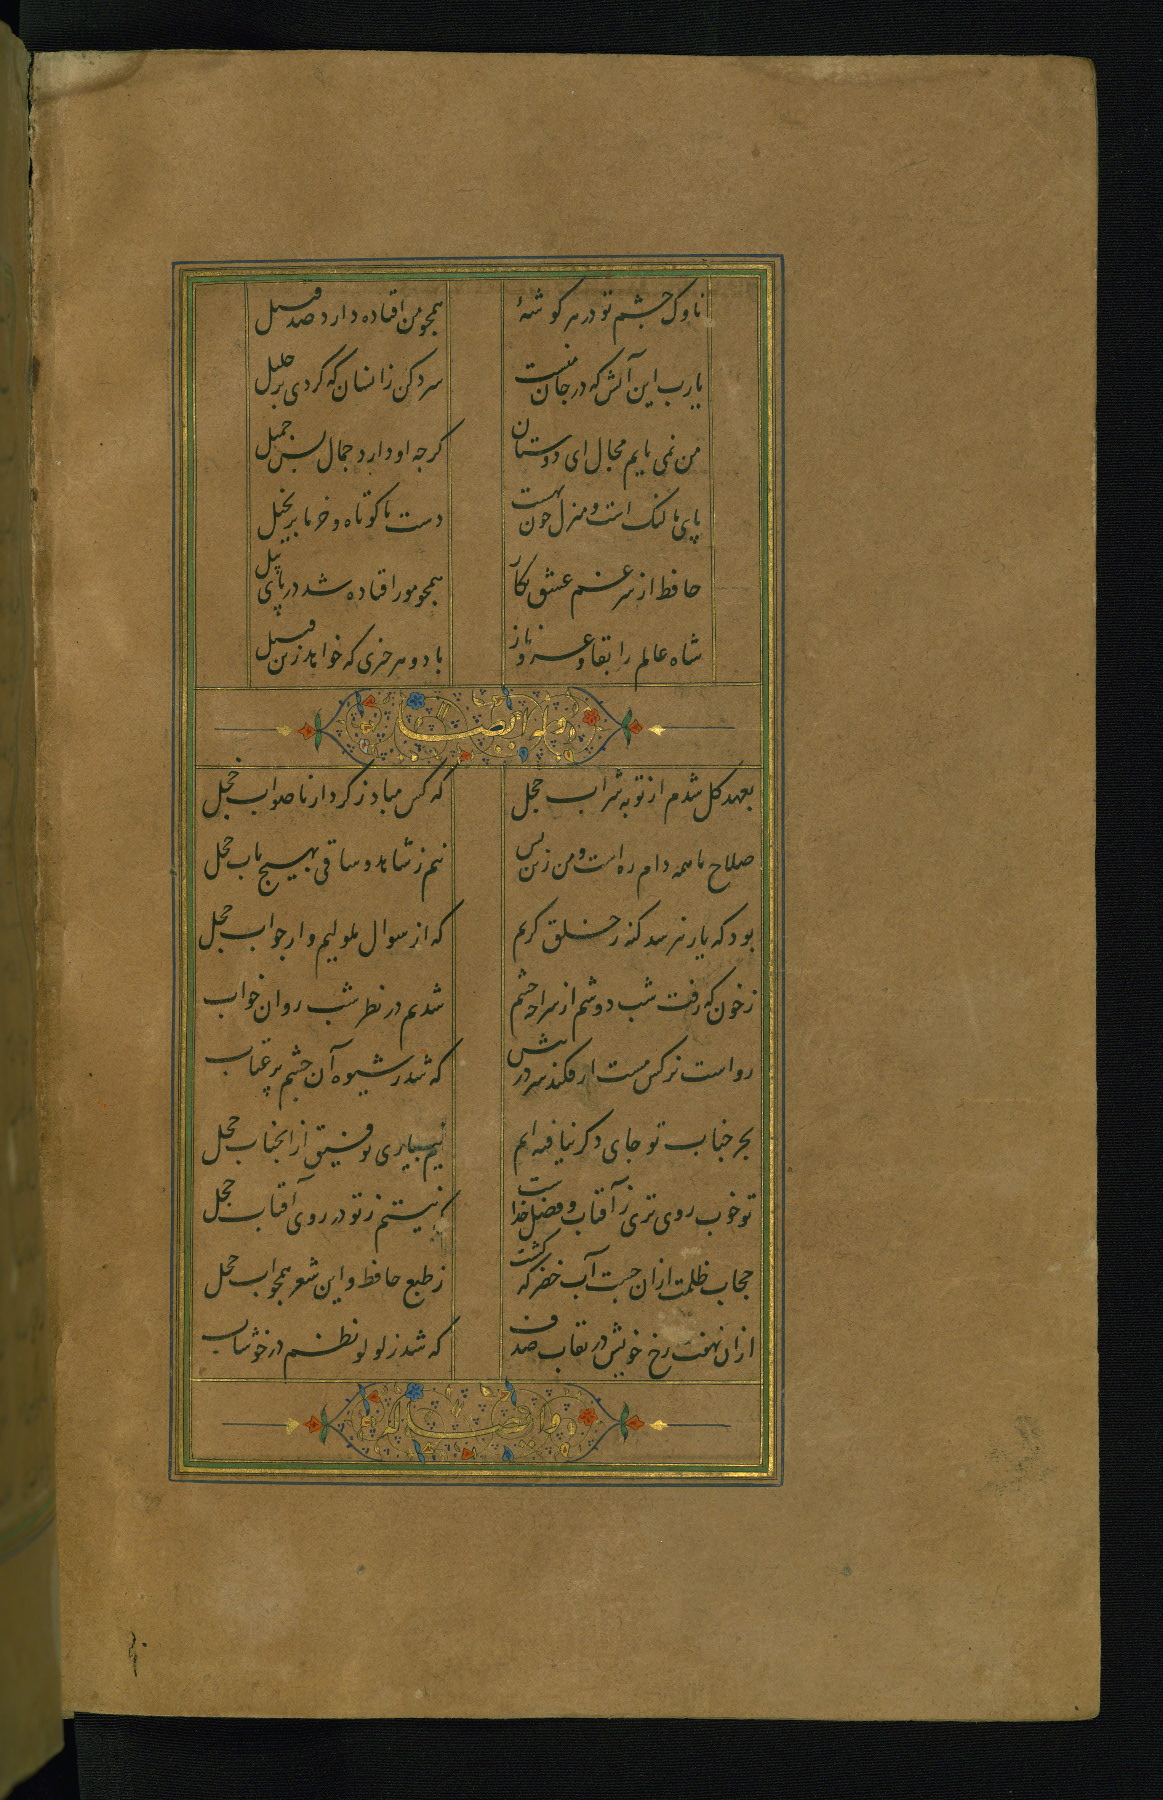 ناوک چشم تو در هر کوشهٔ همچو من افتاده دارد صد قتیل
یارب این آتش که در جان منست سرد کن زانسان که کردی بر خلیل
من نمی یابم مجال ای دوستان کرچه او دارد جمال بس جمیل
پای ما لنک است و منزل چون بهشت دست ما کوتاه و خرما بر نخیل
حافظ از سر غم عشق نکار همچو مور افتاده شد در پای پیل
شاه عالم را بقا و عز و ناز باد و هر چیزی که خواهد زین قبیل
وله ایضا
بعهد کل شدم از توبه شراب خجل که کس مباد ز کردار ناصواب خجل
صلاح ما همه دام ره است و من زین پس نیم ز شاهد و ساقی بهیچ باب خجل
بود که یار نپرسد کنه ز خلق کریم که از سوال ملولیم و از جواب خجل
ز خون که رفت شب دوشم از سراچه چشم شدیم در نظر شب روان خواب
رواست نرکس مست ار فکند سر در پیش که شد ز شیوه آن چشم پر عتاب
بجز جناب تو جای دکر نیافته ایم نیم بیاری توفیق ازانجناب خجل
تو خوب روی تری ز آفتاب و فضل خداست که نیستم ز تو در روی آفتاب خجل
حجاب ظلمت ازان جست آب خضر که کشت ز طبع حافظ و این شعر همچو اب خجل
ازان نهفت رخ خویش در نقاب صدف که شد ز لولو نظم در خوشاب
وایضا له